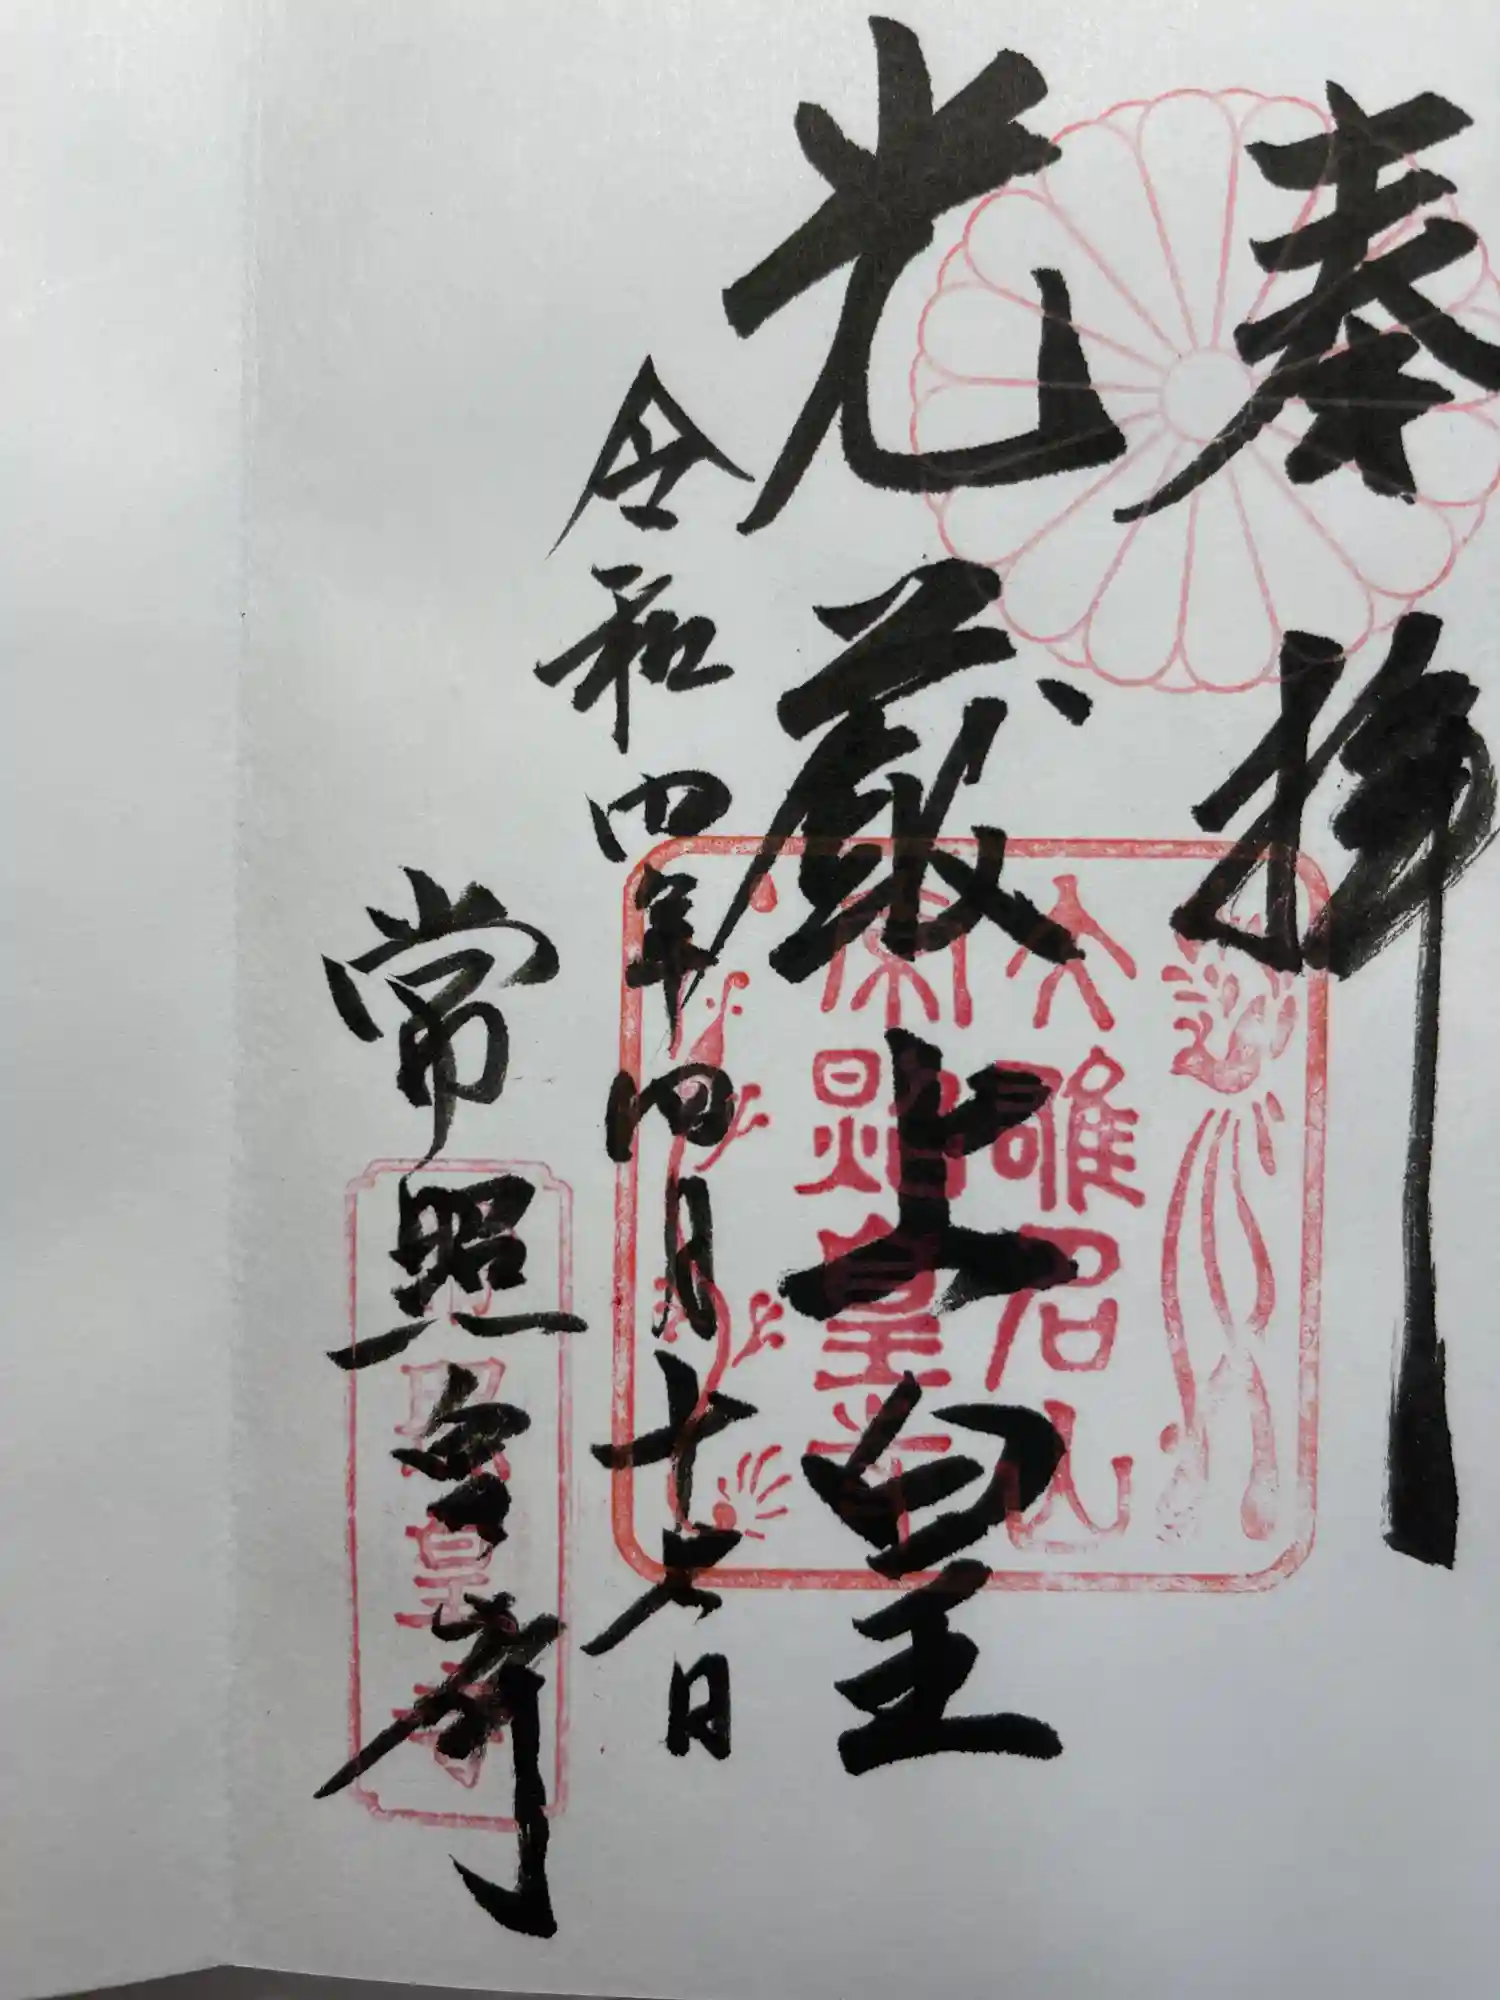 奉拝
光厳上皇
令和四年四月十六日
常照皇寺
大雄名山
常照皇寺
常照皇寺